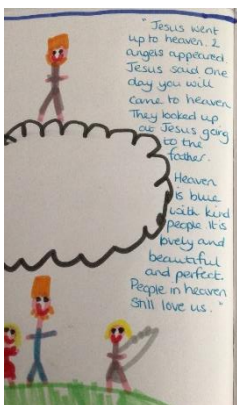 "Jesus went
up to heaven. 2
angels appeared
Jesus said one
day you will
came to heaven
They looked up
as Jesus going
to the
father.
Heaven
is blue
with kind
people. It is
lovely and
beautiful
and perfect.
People in heaven
still love us."